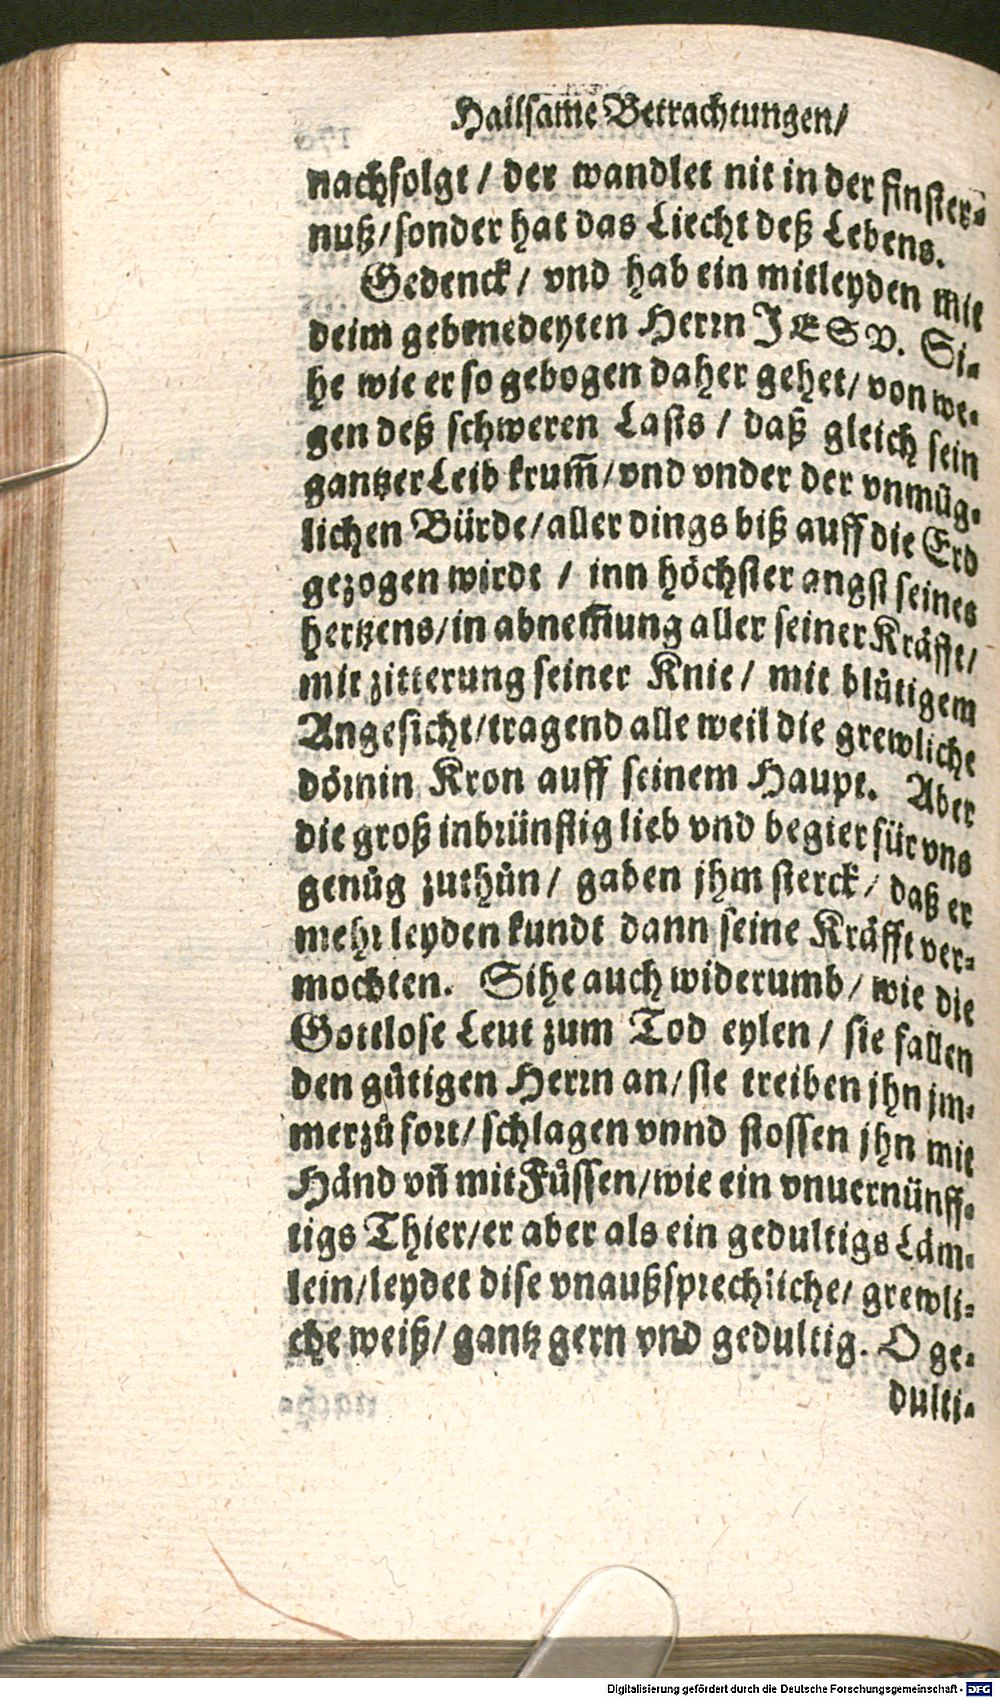 Hailsame Betrachtungen/
nachfolgt / der wandlet nit in der finster-
nuß/ sonder hat das Liecht deß Lebens.
Gedenck / vnd hab ein mitleyden mit
deim gebenedeyten Herrn JESV. Si-
he wie er so gebogen daher gehet/ von we-
gen deß schweren Lasts / daß gleich sein
gantzer Leib krum̃/ vnd vnder der vnmüg-
lichen Bürde/ aller dings biß auff die Erd
gezogen wirdt / inn höchster angst seines
hertzens/ in abnem̃ung aller seiner Kräfft/
mit zitterung seiner Knie/ mit blůtigem
Angesicht/ tragend alle weil die grewliche
dörnin Kron auff seinem Haupt. Aber
die groß inbrünstig lieb vnd begier für vns
genůg zuthůn/ gaben jhm sterck/ daß er
mehr leyden kundt dann seine Kräfft ver-
mochten. Sihe auch widerumb/ wie die
Gottlose Leut zum Tod eylen / sie fallen
den gütigen Herrn an/ sie treiben jhn jm-
merzů fort/ schlagen vnnd stossen jhn mit
Händ vñ mit Füssen/ wie ein vnuernünff-
tigs Thier/ er aber als ein gedultigs Läm-
lein/ leydet dise vnaußsprechliche/ grewli-
che weiß/ gantz gern vnd gedultig. O ge-
dulti-
Digitalisierung gefördert durch die Deutsche Forschungsgemeinschaft - DFG